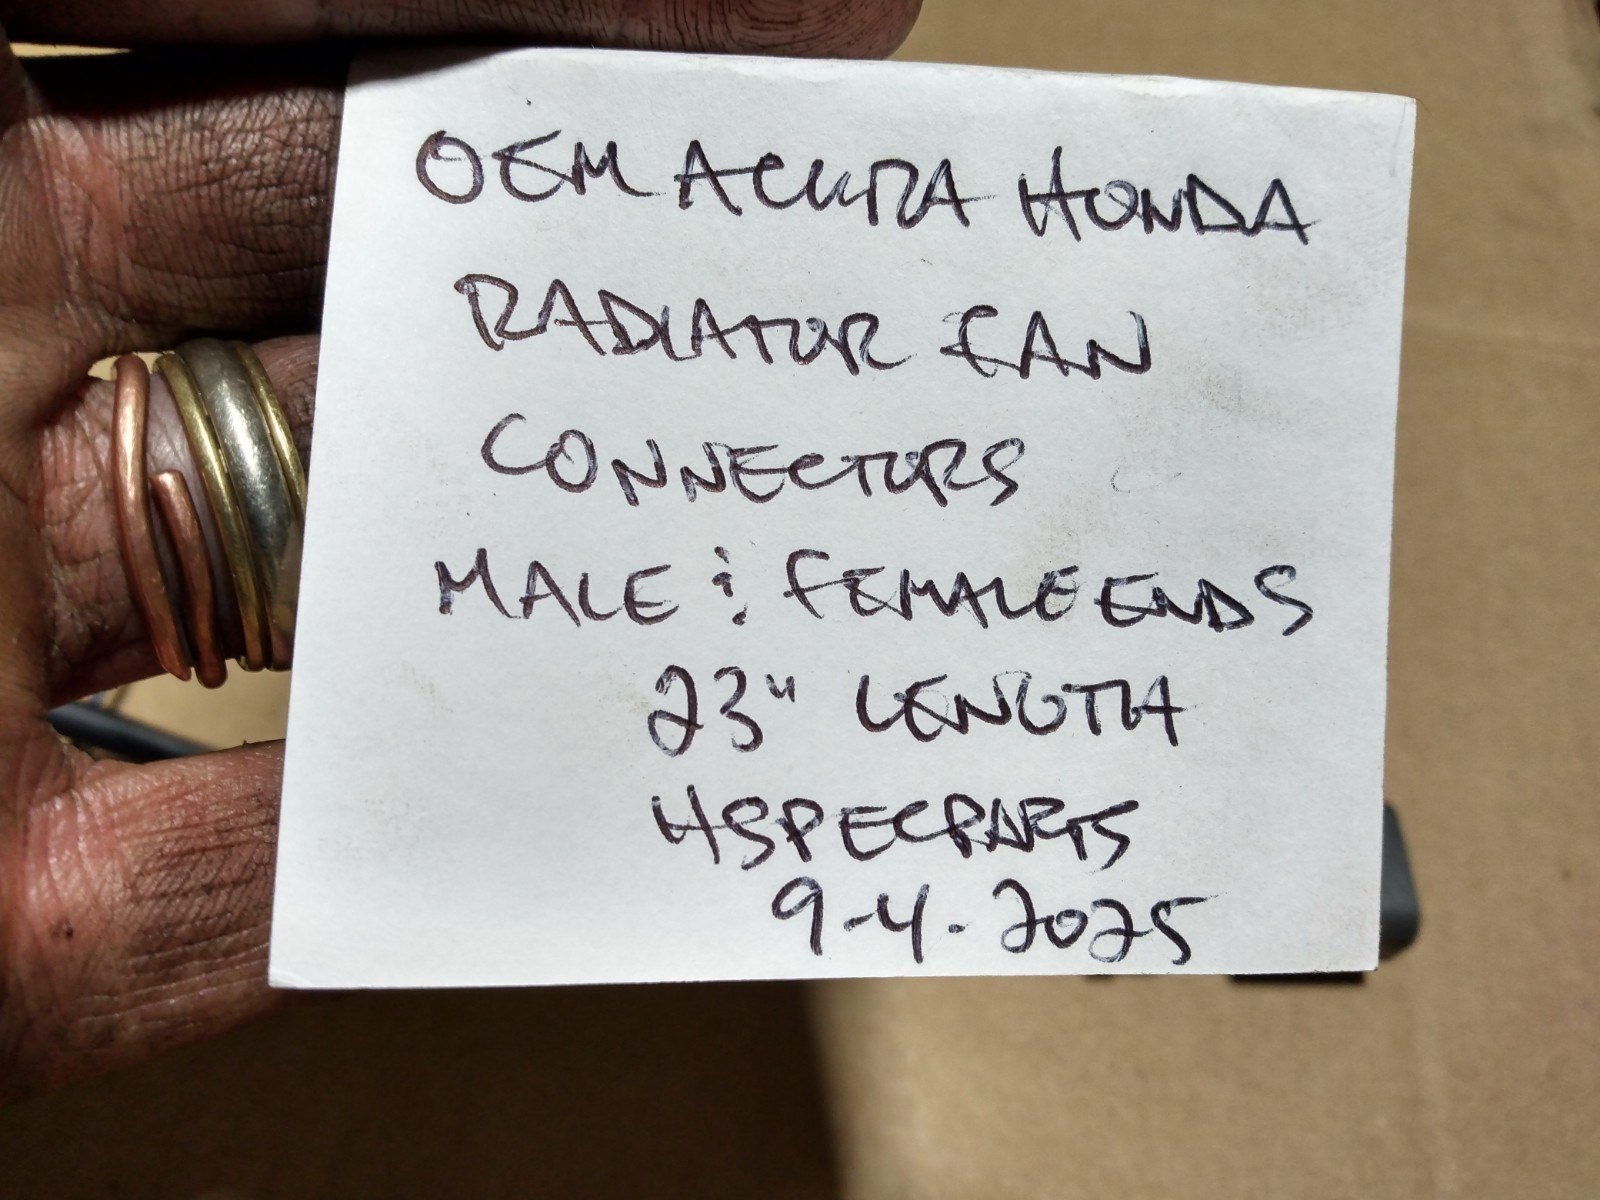 OEM ACURA HONDA
RADIATOR FAN
CONNECTORS
MALE & FEMALE ENDS
23" LENGTH
HSPECPARTS
9-4-2025